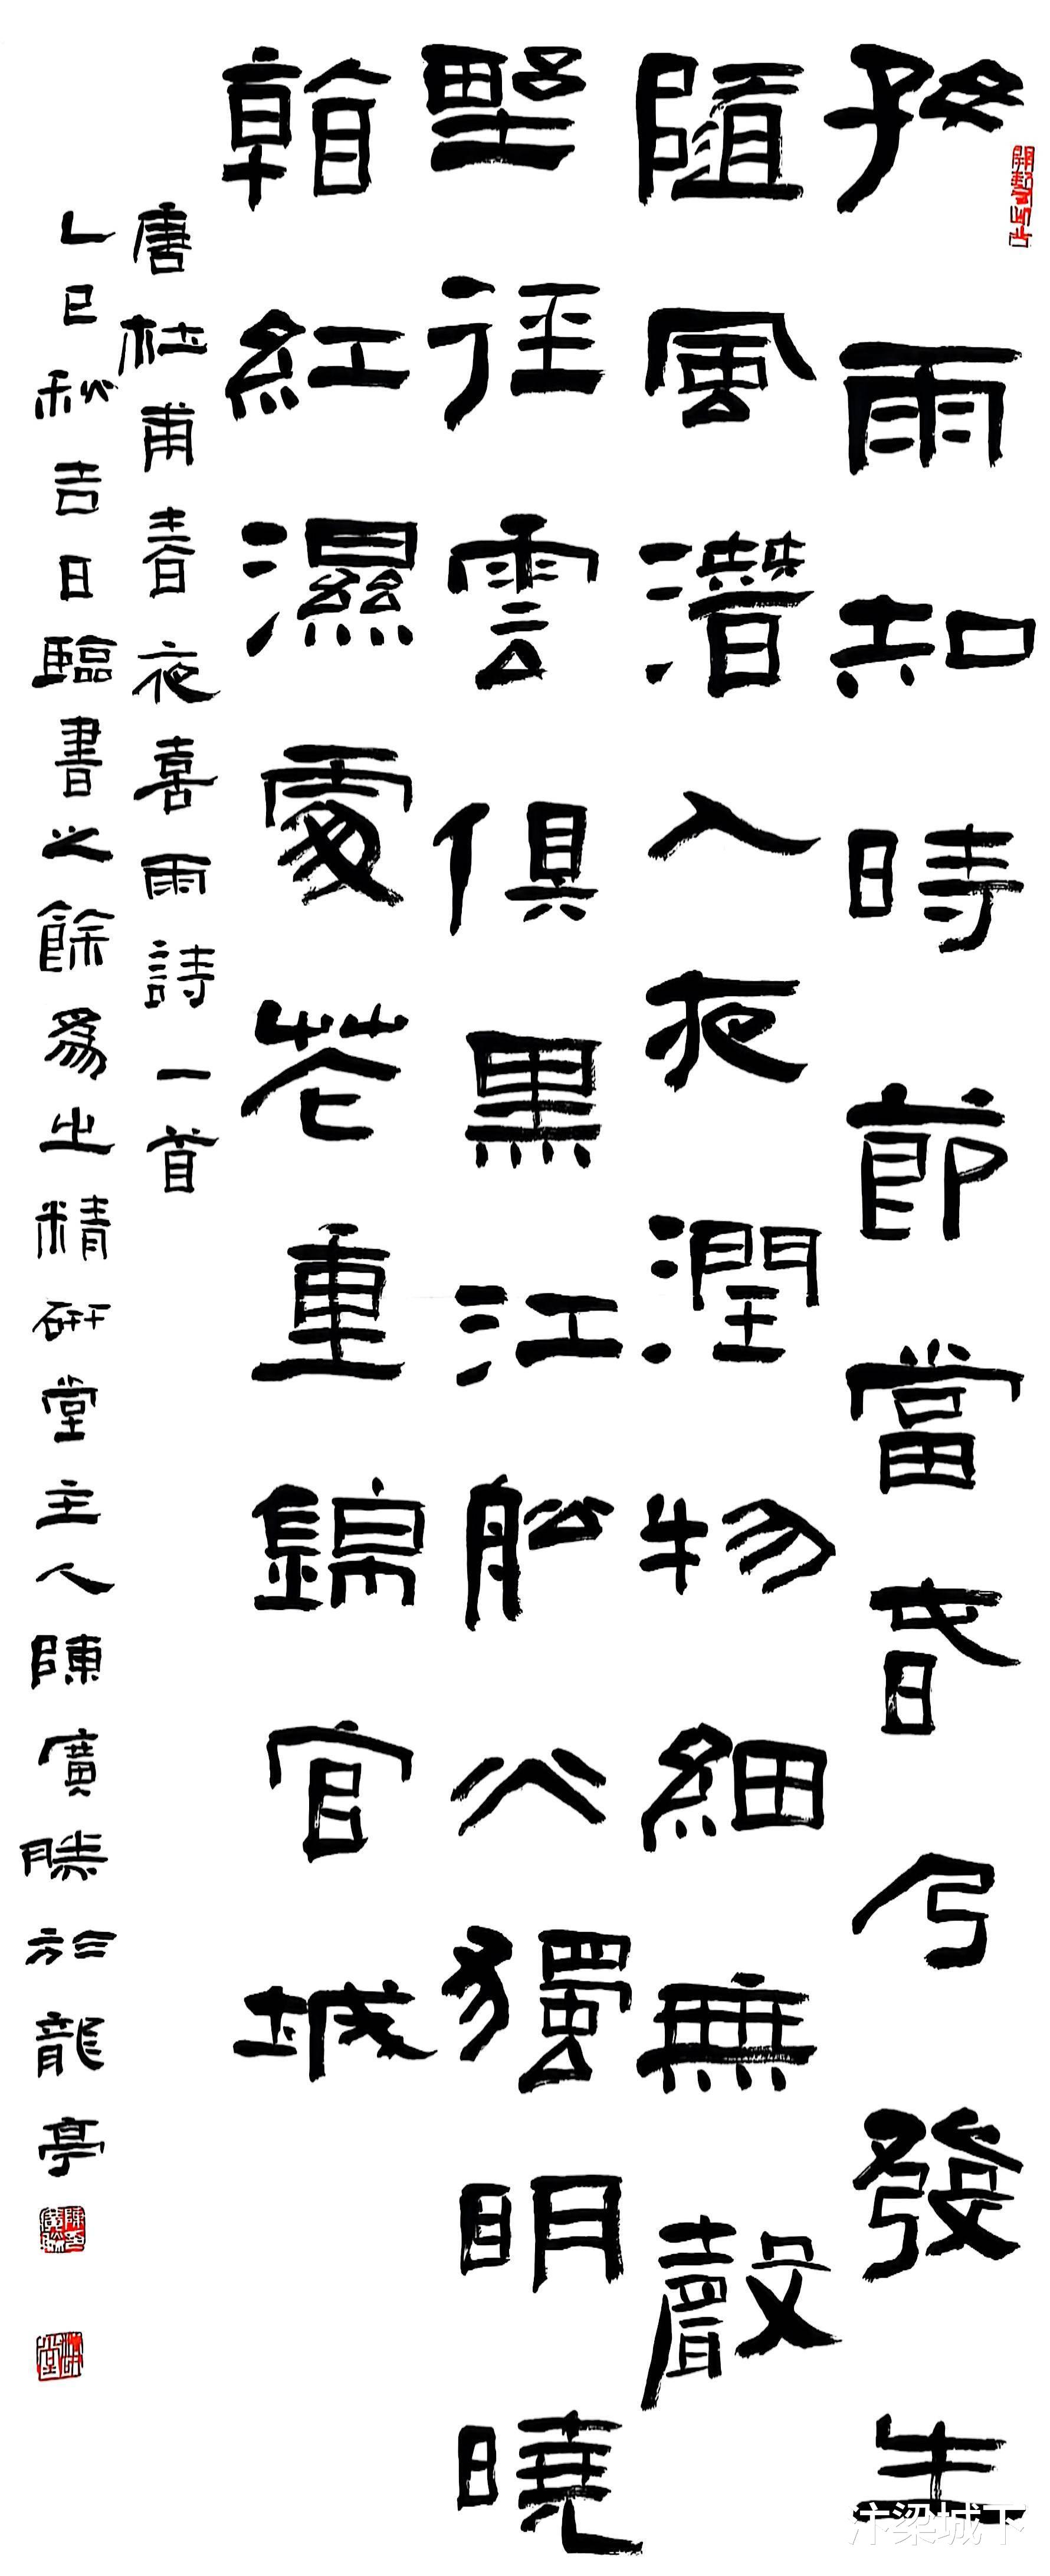 好雨知時節當春乃發生
隨風潛入夜潤物細無聲
野徑雲俱黑江船火獨明曉
看紅濕處花重錦官城
唐杜甫春夜喜雨詩一首
乙巳秋吉日臨書之餘為之精研堂主人陳廣勝於龍亭
汴梁城下